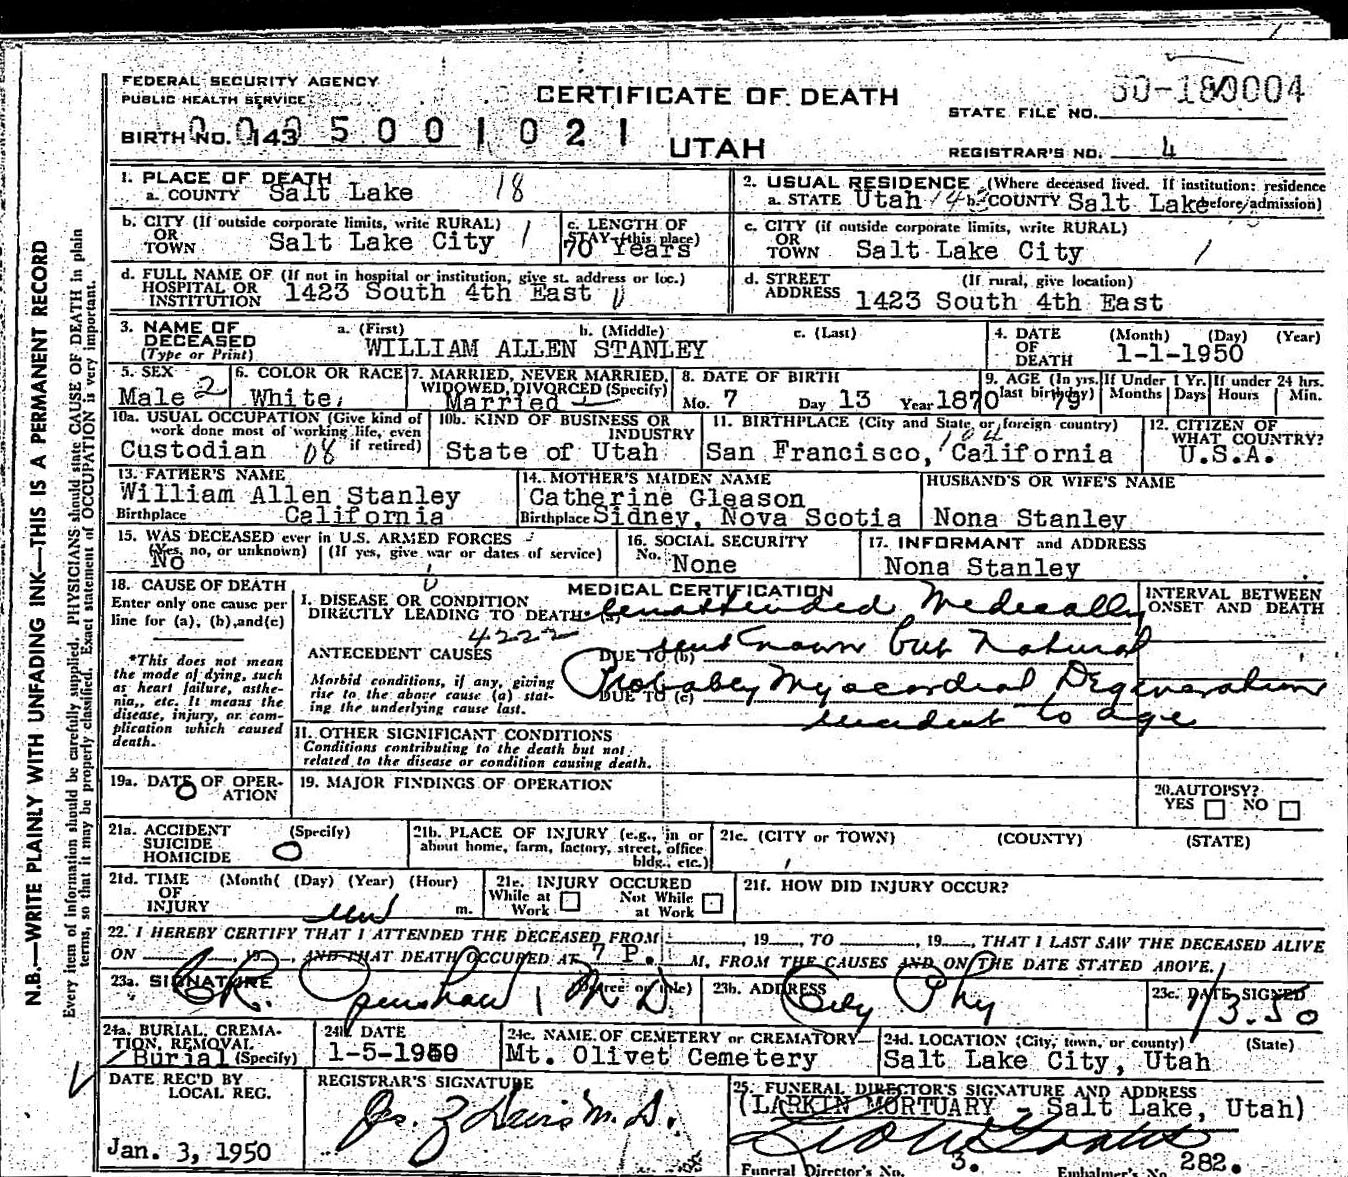 FEDERAL SECURITY AGENCY
PUBLIC HEALTH SERVICE
CERTIFICATE OF DEATH
UTAH
STATE FILE NO. 50-180004
BIRTH NO. 143 0005001021
REGISTRAR'S NO. 4
1. PLACE OF DEATH
a. COUNTY Salt Lake 18
2. USUAL RESIDENCE (Where deceased lived. If institution: residence before admission)
a. STATE Utah b. COUNTY Salt Lake
b. CITY (If outside corporate limits, write RURAL)
OR TOWN Salt Lake City 1
c. LENGTH OF STAY (this place)
70 Years
c. CITY (if outside corporate limits, write RURAL)
OR TOWN Salt Lake City 1
d. FULL NAME OF HOSPITAL OR INSTITUTION (If not in hospital or institution, give st. address or loc.)
1423 South 4th East
d. STREET ADDRESS (If rural, give location)
1423 South 4th East
3. NAME OF DECEASED (Type or Print)
a. (First) b. (Middle) c. (Last)
WILLIAM ALLEN STANLEY
4. DATE OF DEATH (Month) (Day) (Year)
1-1-1950
5. SEX
Male 2
6. COLOR OR RACE
White
7. MARRIED, NEVER MARRIED, WIDOWED, DIVORCED (Specify)
Married
8. DATE OF BIRTH
Mo. 7 Day 13 Year 1870
9. AGE (In yrs. last birthday) 79
If Under 1 Yr. Months Days
If under 24 hrs. Hours Min.
10a. USUAL OCCUPATION (Give kind of work done most of working life, even if retired)
Custodian 08
10b. KIND OF BUSINESS OR INDUSTRY
State of Utah
11. BIRTHPLACE (City and State or foreign country)
104
San Francisco, California
12. CITIZEN OF WHAT COUNTRY?
U.S.A.
13. FATHER'S NAME
William Allen Stanley
Birthplace California
14. MOTHER'S MAIDEN NAME
Catherine Gleason
Birthplace Sidney, Nova Scotia
HUSBAND'S OR WIFE'S NAME
Nona Stanley
15. WAS DECEASED ever in U.S. ARMED FORCES
(Yes, no, or unknown) (If yes, give war or dates of service)
No
16. SOCIAL SECURITY
No. None
17. INFORMANT and ADDRESS
Nona Stanley
18. CAUSE OF DEATH
Enter only one cause per line for (a), (b), and (c)
*This does not mean the mode of dying, such as heart failure, asthenia, etc. It means the disease, injury, or complication which caused death.
MEDICAL CERTIFICATION
I. DISEASE OR CONDITION DIRECTLY LEADING TO DEATH* (a) Unattended Medically
4222
ANTECEDENT CAUSES
DUE TO (b) unknown but natural
Morbid conditions, if any, giving rise to the above cause (a) stating the underlying cause last.
DUE TO (c) Probably Myocardial Degeneration
incident to age
INTERVAL BETWEEN ONSET AND DEATH
II. OTHER SIGNIFICANT CONDITIONS
Conditions contributing to the death but not related to the disease or condition causing death.
19a. DATE OF OPERATION
0
19. MAJOR FINDINGS OF OPERATION
20. AUTOPSY?
YES NO
21a. ACCIDENT SUICIDE HOMICIDE (Specify)
0
21b. PLACE OF INJURY (e.g., in or about home, farm, factory, street, office bldg., etc.)
21c. (CITY or TOWN) (COUNTY) (STATE)
21d. TIME OF INJURY (Month( (Day) (Year) (Hour)
m.
21e. INJURY OCCURED
While at Work Not While at Work
21f. HOW DID INJURY OCCUR?
22. I HEREBY CERTIFY THAT I ATTENDED THE DECEASED FROM , 19 , TO , 19 , THAT I LAST SAW THE DECEASED ALIVE
ON , 19 , AND THAT DEATH OCCURED AT 7 P. M. FROM THE CAUSES AND ON THE DATE STATED ABOVE.
23a. SIGNATURE (Degree or title)
C R. Openshaw, M D
23b. ADDRESS
City Phy
23c. DATE SIGNED
1/3.50
24a. BURIAL, CREMATION, REMOVAL (Specify)
Burial
24b. DATE
1-5-1950
24c. NAME OF CEMETERY or CREMATORY
Mt. Olivet Cemetery
24d. LOCATION (City, town, or county) (State)
Salt Lake City, Utah
DATE REC'D BY LOCAL REG.
Jan. 3, 1950
REGISTRAR'S SIGNATURE
25. FUNERAL DIRECTOR'S SIGNATURE AND ADDRESS
(LARKIN MORTUARY - Salt Lake, Utah)
Funeral Director's No. 3. Embalmer's No. 282.
N.B.—WRITE PLAINLY WITH UNFADING INK—THIS IS A PERMANENT RECORD
Every item of information should be carefully supplied. PHYSICIANS should state CAUSE OF DEATH in plain
terms, so that it may be properly classified. Exact statement of OCCUPATION is very important.